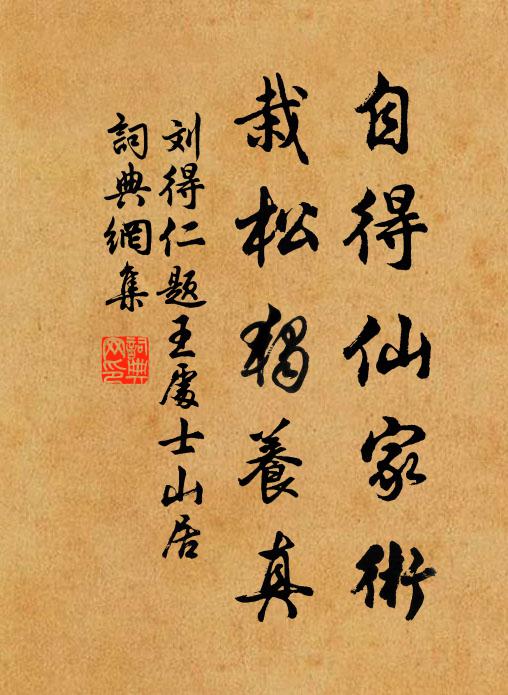 自得仙家術
栽松獨養真
刘得仁题王處士山居
詞典網集
詞典网印